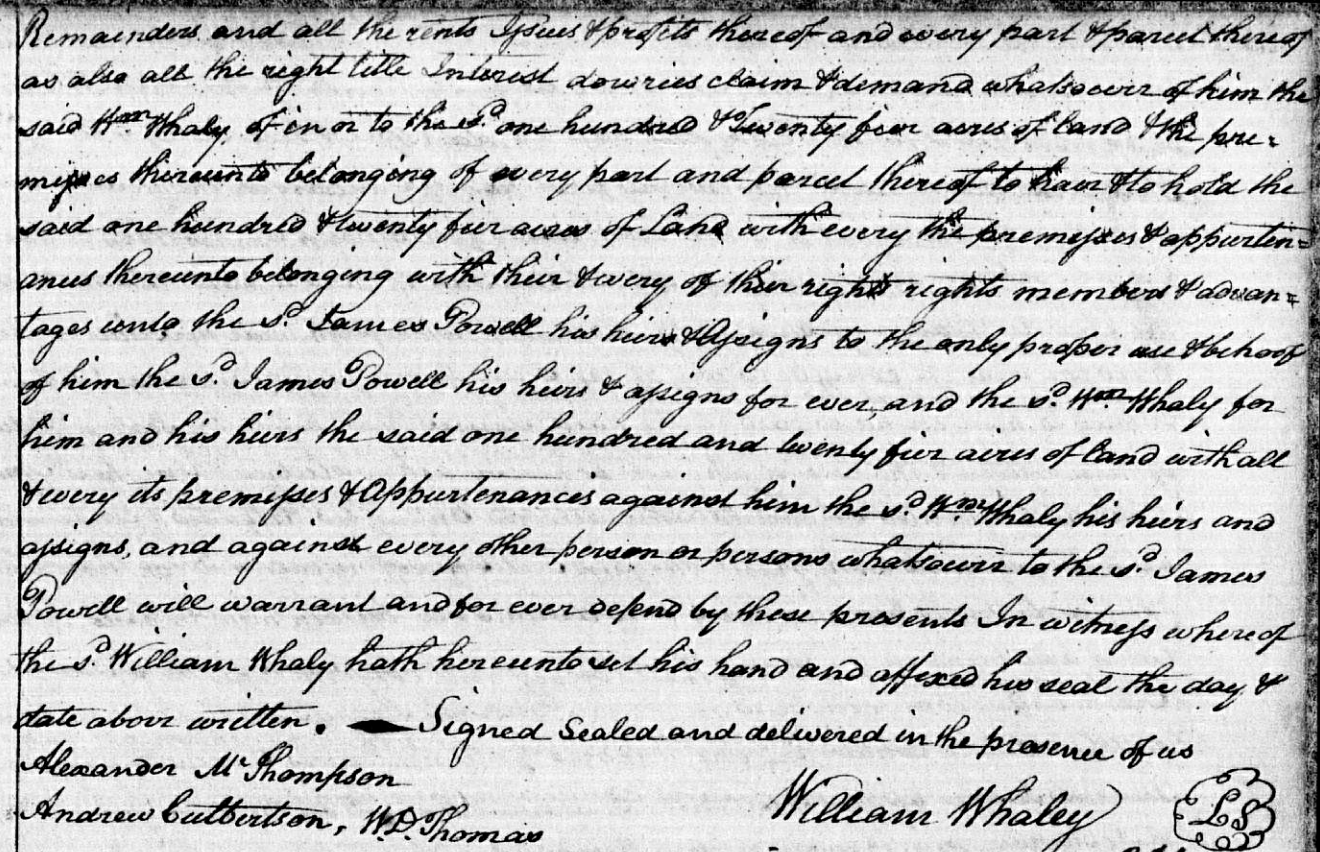 Remainders and all the rents Issues & profits thereof and every part & parcel thereof
as also all the right title Interest dowries claim & demand whatsoever of him the
said Wm. Whaly of in or to the sd. one hundred & Twenty five acres of Land & the pre=
misses thereunto belonging of every part and parcel thereof to have & to hold the
said one hundred & twenty five acres of Land with every the premisses & appurten=
ances thereunto belonging with their & every of their right rights members & advan=
tages unto the sd. James Powell his heirs & Assigns to the only proper use & behoof
of him the sd. James Powell his heirs & assigns for ever, and the sd. Wm. Whaly for
him and his heirs the said one hundred and twenty five acres of Land with all
& every its premisses & Appurtenances against him the sd. Wm. Whaly his heirs and
assigns, and against every other person or persons whatsoever to the sd. James
Powell will warrant and for ever defend by these presents In witness where of
the sd. William Whaly hath hereunto set his hand and affixed his seal the day &
date above written. Signed Sealed and delivered in the presence of us
Alexander Mc Thompson
Andrew Cutbertson, W.D. Thomas
William Whaley LS